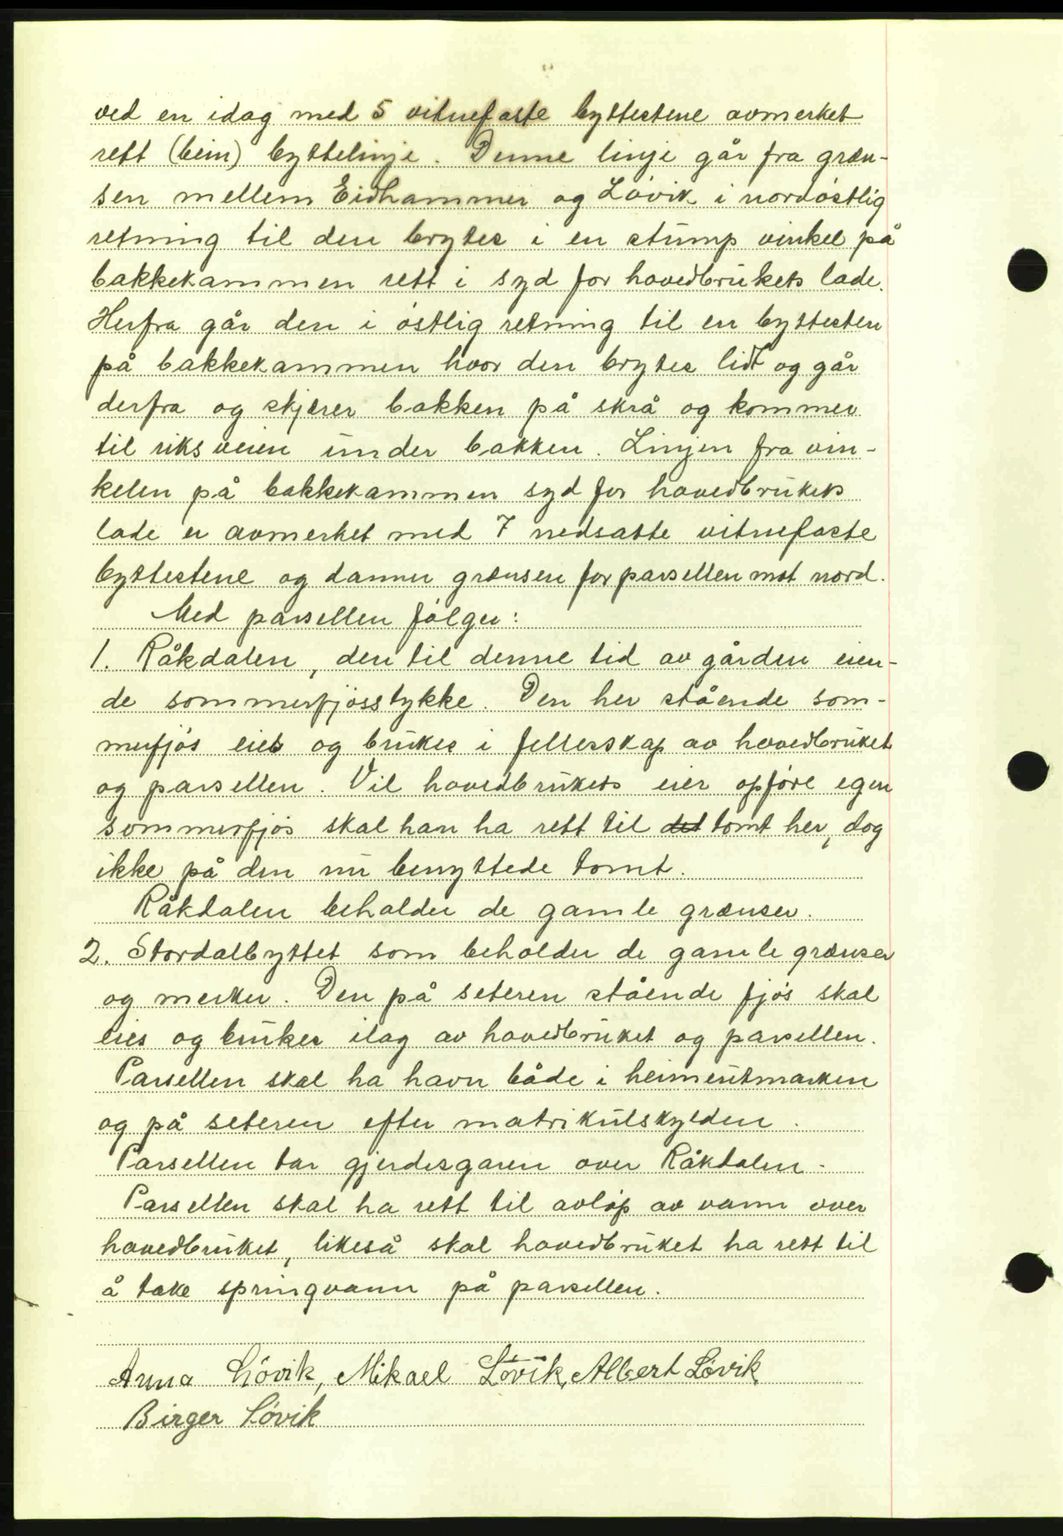 ved en idag med 5 vitnefaste byttestene avmerket
rett (bein) byttelinje. Denne linje går fra græn-
sen mellem Eidhammer og Løvik i nordøstlig
retning til den brytes i en stump vinkel på
bakkekammen rett i syd for hovedbrukets lade.
Herfra går den i østlig retning til en byttesten
på bakkekammen hvor den brytes lidt og går
derfra og skjærer bakken på skrå og kommer
til riksveien under bakken. Linjen fra vin-
kelen på bakkekammen syd for hovedbrukets
lade er avmerket med 7 nedsatte vitnefaste
byttestene og danner grænsen for parsellen mot nord.
Med parsellen følger:
1. Råkdalen, den til denne tid av gården eien-
de sommerfjøsstykke. Den her stående som-
merfjøs eies og brukes i fellesskap av hovedbruket
og parsellen. Vil hovedbrukets eier opføre egen
sommerfjøs skal han ha rett til det tomt her, dog
ikke på den nu benyttede tomt.
Råkdalen beholder de gamle grænser.
2. Stordalbyttet som beholder de gamle grænser
og merker. Den på seteren stående fjøs skal
eies og brukes ilag av hovedbruket og parsellen.
Parsellen skal ha havn både i heimeutmarken
og på seteren efter matrikulskylden.
Parsellen tar gjerdesgaren over Råkdalen.
Parsellen skal ha rett til avløp av vann over
hovedbruket, likeså skal hovedbruket ha rett til
å take springvann på parsellen.
Anna Løvik, Mikael Løvik, Albert Løvik,
Birger Løvik